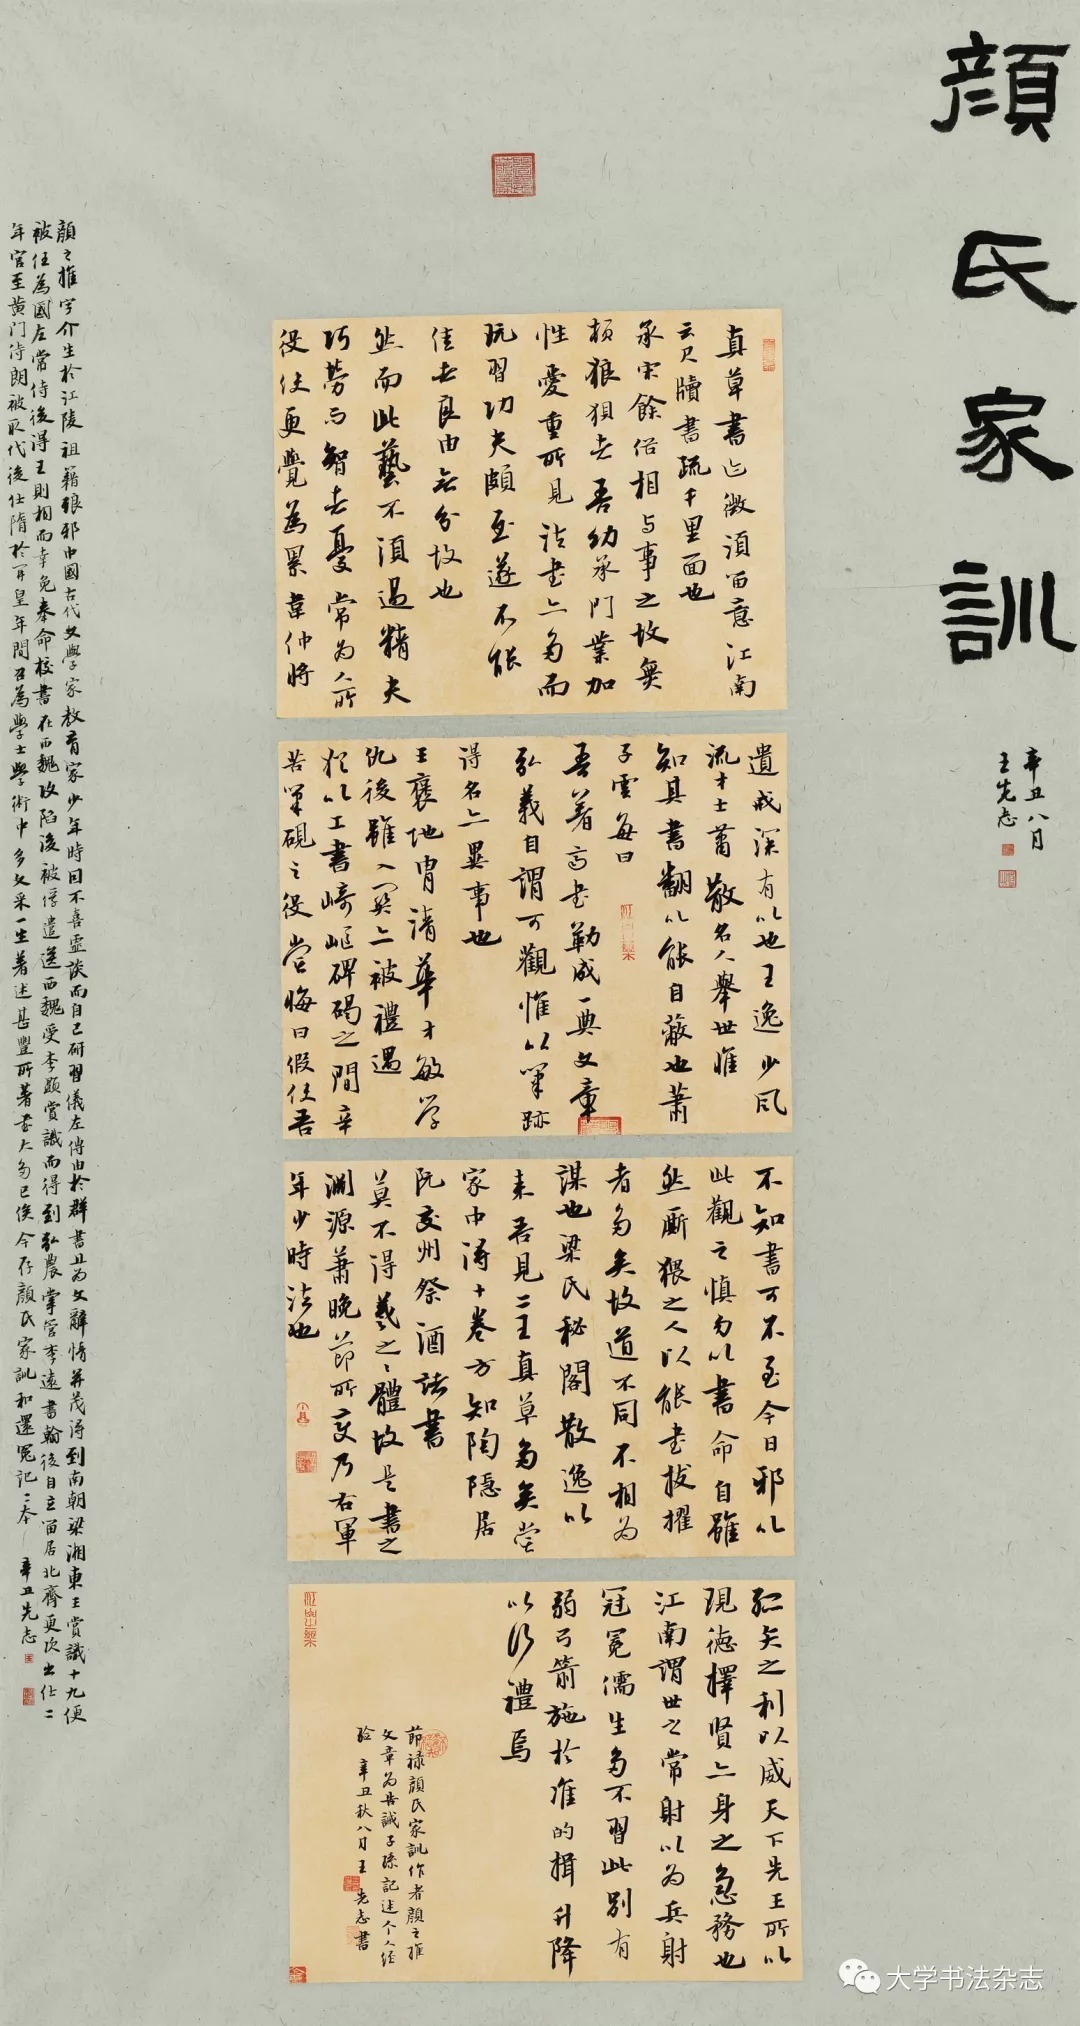 顏氏家訓
辛丑八月
王先志
真草書迹微須留意江南
云尺牘書疏千里面也
承宋餘俗相与事之故無
頓狼狽者吾幼承門業加
性愛重所見法書亦多而
玩習功夫頗至遂不能
佳者良由無分故也
然而此藝不須過精夫
巧勞而智者憂常為人所
役使更覺為累韋仲將
遺戒深有以也王逸少風
流才士蕭散名人舉世惟
知其書翻以能自蔽也蕭
子雲每曰
吾著齊書勒成一典文章
弘義自謂可觀惟以筆跡
得名亦異事也
王褒地胄清華才敏學
後雖入關亦被禮遇
猶以工書崎嶇碑碣之間辛
苦筆硯之役嘗悔曰假使吾
不知書可不至今日邪以
此觀之慎勿以書命自雖
然廝猥之人以能書拔擢
者多矣故道不同不相為
謀也梁氏秘閣散逸以
來吾見二王真草多矣嘗
家中得十卷方知陶隱居
阮交州祭酒諸書
莫不得羲之之體故是書之
淵源蕭晚節所變乃右軍
年少時法也
弧矢之利以威天下先王所以
現德擇賢亦身之急務也
江南謂世之常射以為兵射
冠冕儒生多不習此別有
弱弓箭施於准的揖升降
以行禮焉
節祿顏氏家訓作者顏之推
文章為告誡子孫記述个人經
驗 辛丑秋八月王先志書
顏之推字介生於江陵祖籍琅邪中國古代文學家教育家少年時因不喜虛談而自己研習儀左傳由於群書且為文辭情並茂得到南朝梁湘東王賞識十九便
被任為國左常侍後得王則相而幸免奉命校書在西魏攻陷後被俘遣送西魏受李顯賞識而得到弘農掌管李遠書翰後自立留居北齊更次出仕二
年官至黃門侍朗被取代後仕隋於开皇年間召為學士學術中多文采一生著述甚豐所著書大多已佚今存顏氏家訓和還冤記二本 辛丑先志
大学书法杂志